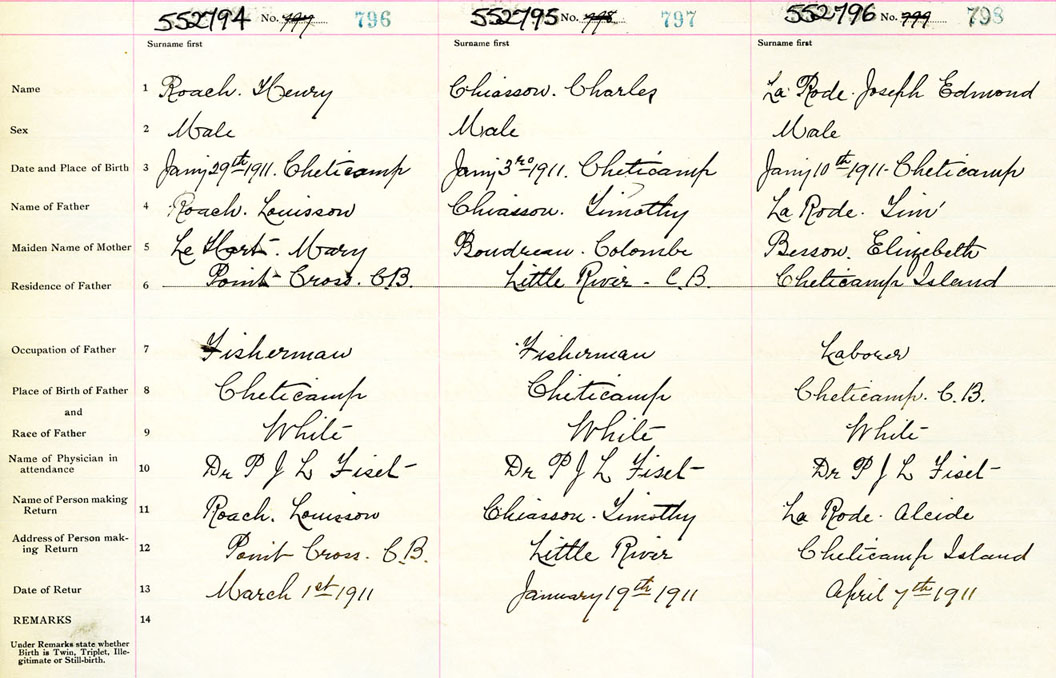 552794 No. 797 796 552795 No. 798 797 552796 No. 799 798
Surname first Surname first Surname first
Name 1 Roach. Henry Chiasson. Charles La Rode. Joseph Edmond
Sex 2 Male Male Male
Date and Place of Birth 3 Jany 29th 1911. Cheticamp Jany 3rd 1911. Cheticamp Jany 10th 1911- Cheticamp
Name of Father 4 Roach. Louisson Chiasson. Timothy La Rode. Tim'
Maiden Name of Mother 5 Le Hort. Mary Boudreau. Colombe Besson. Elizebeth
Residence of Father 6 Point Cross. C.B. Little River - C.B. Cheticamp Island
Occupation of Father 7 Fisherman Fisherman Laborer
Place of Birth of Father 8 Cheticamp Cheticamp Cheticamp. C.B.
and
Race of Father 9 White White White
Name of Physician in
attendance 10 Dr P J L Fiset Dr P J L Fiset Dr P J L Fiset
Name of Person making
Return 11 Roach. Louisson Chiasson. Timothy La Rode. Alcide
Address of Person mak-
ing Return 12 Point Cross. C.B. Little River Cheticamp Island
Date of Retur 13 March 1st 1911 January 19th 1911 April 7th 1911
REMARKS 14
Under Remarks state whether
Birth is Twin, Triplet, Ille-
gitimate or Still-birth.